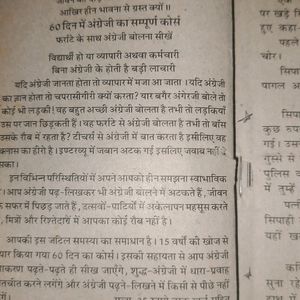 आखिर हीन भावना से ग्रस्त क्यों ॥
६० दिन में अंग्रेजी का सम्पूर्ण कोर्स
फर्राटे के साथ अंग्रेजी बोलना सीखें
विद्यार्थी हो या व्यापारी अथवा कर्मचारी
बिना अंग्रेजी के होती है बड़ी लाचारी
यदि अंग्रेजी जानता होता तो व्यापार में मजा आ जाता । यदि अंग्रेजी
का ज्ञान होता तो चपरासीगीरी क्यों करता? यार बगैर अंगेरजी बोले तो
कोई भी लड़की! वह बहुत अच्छी अंग्रेजी बोलता है तभी तो लड़कियाँ
उस पर जान छिड़कती हैं। वह फर्राटे से अंग्रेजी बोलता है तभी तो बॉस
उसके रौब में रहता है? टीचर्स से अंग्रेजी में बात करता है इसीलिए वह
क्लास का हीरो है। इण्टरव्यू में जबान अटक गई इसलिए जवाब नहीं
इन विभिन्न परिस्थितियों में अपने आपको हीन समझना स्वाभाविक
। आप अंग्रेजी पढ़-लिखकर भी अंग्रेजी बोलने में अटकते हैं, जीवन
सफर में पिछड़ जाते हैं, उत्सवों-पार्टियों में अकेलापन महसूस करते
मित्रों और रिश्तेदारों में आपका कोई रौब नहीं है।
आपकी इस जटिल समस्या का समाधान है। 15 वर्षों की खोज से
यार किया गया 60 दिन का कोर्स। इसकी सहायता से आप अंग्रेजी
व्याकरण पढ़ते-पढ़ते ही सीख जाएंगे, शुद्ध-अंग्रेजी में धारा-प्रवाह
तचीत करने लगेंगे और अंग्रेजी पढ़ने-लिखने में किसी से पीछे नहीं
पर खड़े
हुए कहा-
पहले
चोर।
सिपा
पागल अ
सिपाही
कुछ
गई। उस
गुस्से से
पुलिस
में तुम्हें
सिपा
नहीं
कहां
सुना रहे